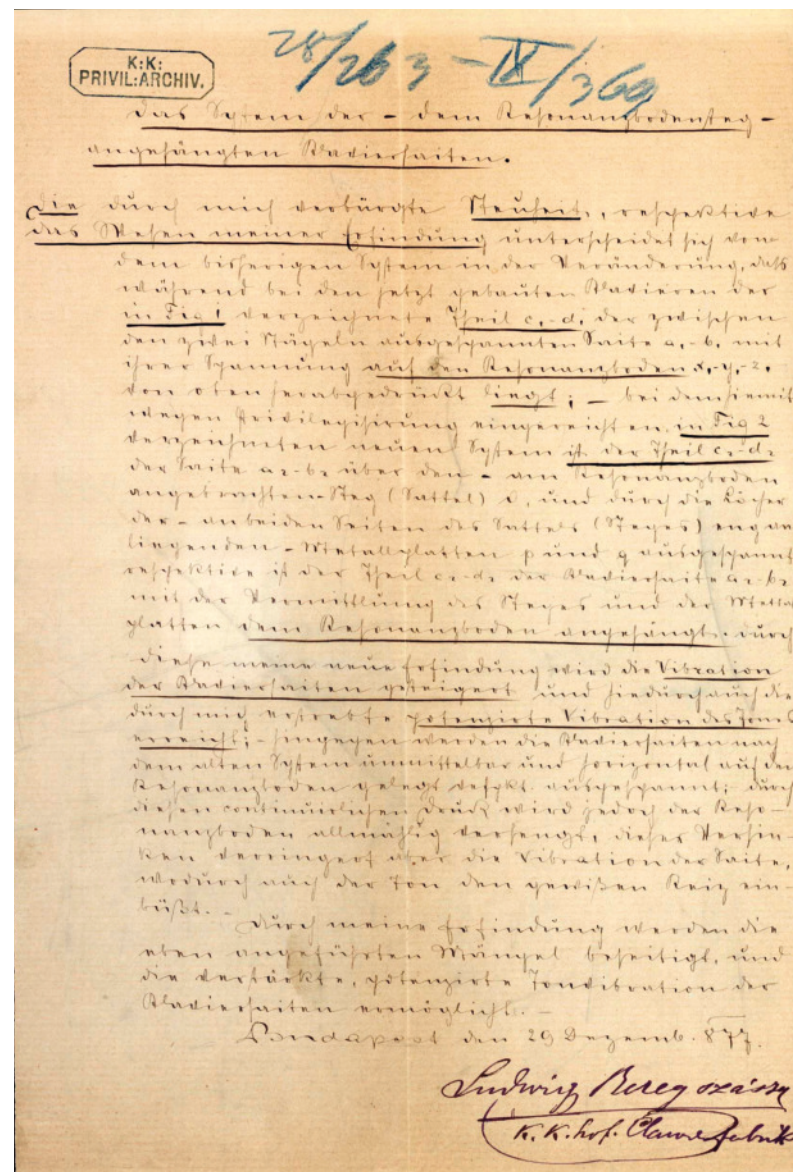 K:K:
PRIVIL:ARCHIV.
28/263 - IX/369
Das System der - dem Resonanzbodensteg -
angehängten Klaviersaiten.
Die durch mich verbürgte Neuheit, respektive
das Wesen meiner Erfindung unterscheidet sich von
dem bisherigen System in der Veränderung, daß
während bei den jetzt gebauten Klavieren der
in Fig 1 verzeichnete Theil c,-d, der zwischen
den zwei Nägeln ausgespannten Saite a,-b, mit
ihrer Spannung auf den Resonanzboden x,-y,-z,
von oben herabgedrückt liegt; - bei dem hiemit
wegen Privilegisirung eingereichten in Fig 2
verzeichneten neuen System ist der Theil c2-d2
der Saite a2-b2 über den - am Resonanzboden
angebrachten - Steg (Sattel) und durch die Löcher
der - an beiden Seiten des Sattels (Steges) eng an
liegenden - Metallplatten p und q ausgespannt
respektive ist der Theil c2-d2 der Klaviersaite a2-b2
mit der Vermittlung des Steges und der Metall
platten dem Resonanzboden angehängt. Durch
diese meine neue Erfindung wird die Vibration
der Klaviersaiten gesteigert und hiedurch auch die
durch mich erstrebte potenzirte Vibration des Tones
erreicht; - hingegen werden die Klaviersaiten nach
dem alten System unmittelbar und horizontal auf den
Resonanzboden gelegt respkt. ausgespannt; durch
diesen continuirlichen Druck wird jedoch der Reso-
nanzboden allmählig versengt, dieses Versin-
ken verringert aber die Vibration der Saite,
wodurch auch der Ton den gewißen Reiz ein-
büßt. -
Durch meine Erfindung werden die
eben angeführten Mängel beseitigt, und
die verstärkte, potenzirte Tonvibration der
Klaviersaiten ermöglicht. -
Budapest den 29 Dezemb. 877.
Ludwig Beregszászy
K. K. hof. Clavierfabrik